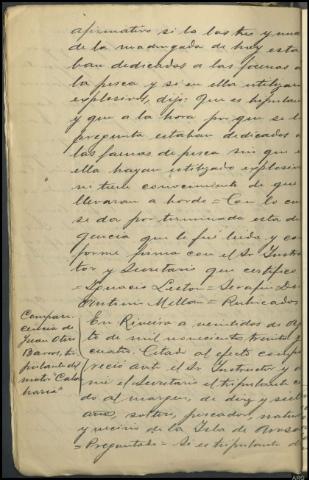 afirmativo si a las tres y una
de la madrugada de hoy esta
ban dedicados a las faenas a
la pesca y si en ella utilizan
explosivos, dijo: Que es tripulan
y que a la hora por que se l
pregunta estaban dedicados a
las faenas de pesca sin que e
ella hayan utilizado explosivo
ni tiene conocimiento de que
llevaran a bordo = Con lo cu
se da por terminada esta di
gencia que le fué leida y con
forme firma con el Sr Instru
tor y Secretario que certifico
= Ignacio = Serafin
Millan = Rubricados
Compare
cencia de
Juan Otero
Barros, tri
pulante del
motor "Cala
bria"
En Riveira a veintidos de
to de mil novecientos treinta y
cuatro. Citado al efecto comp
reció ante el Sr Instructor y a
mi el Secretario el tripulante
do al margen, de diez y siete
años, soltero, pescador, natur
y vecino de la Isla de Arosa
= Preguntado = Si es tripulante d